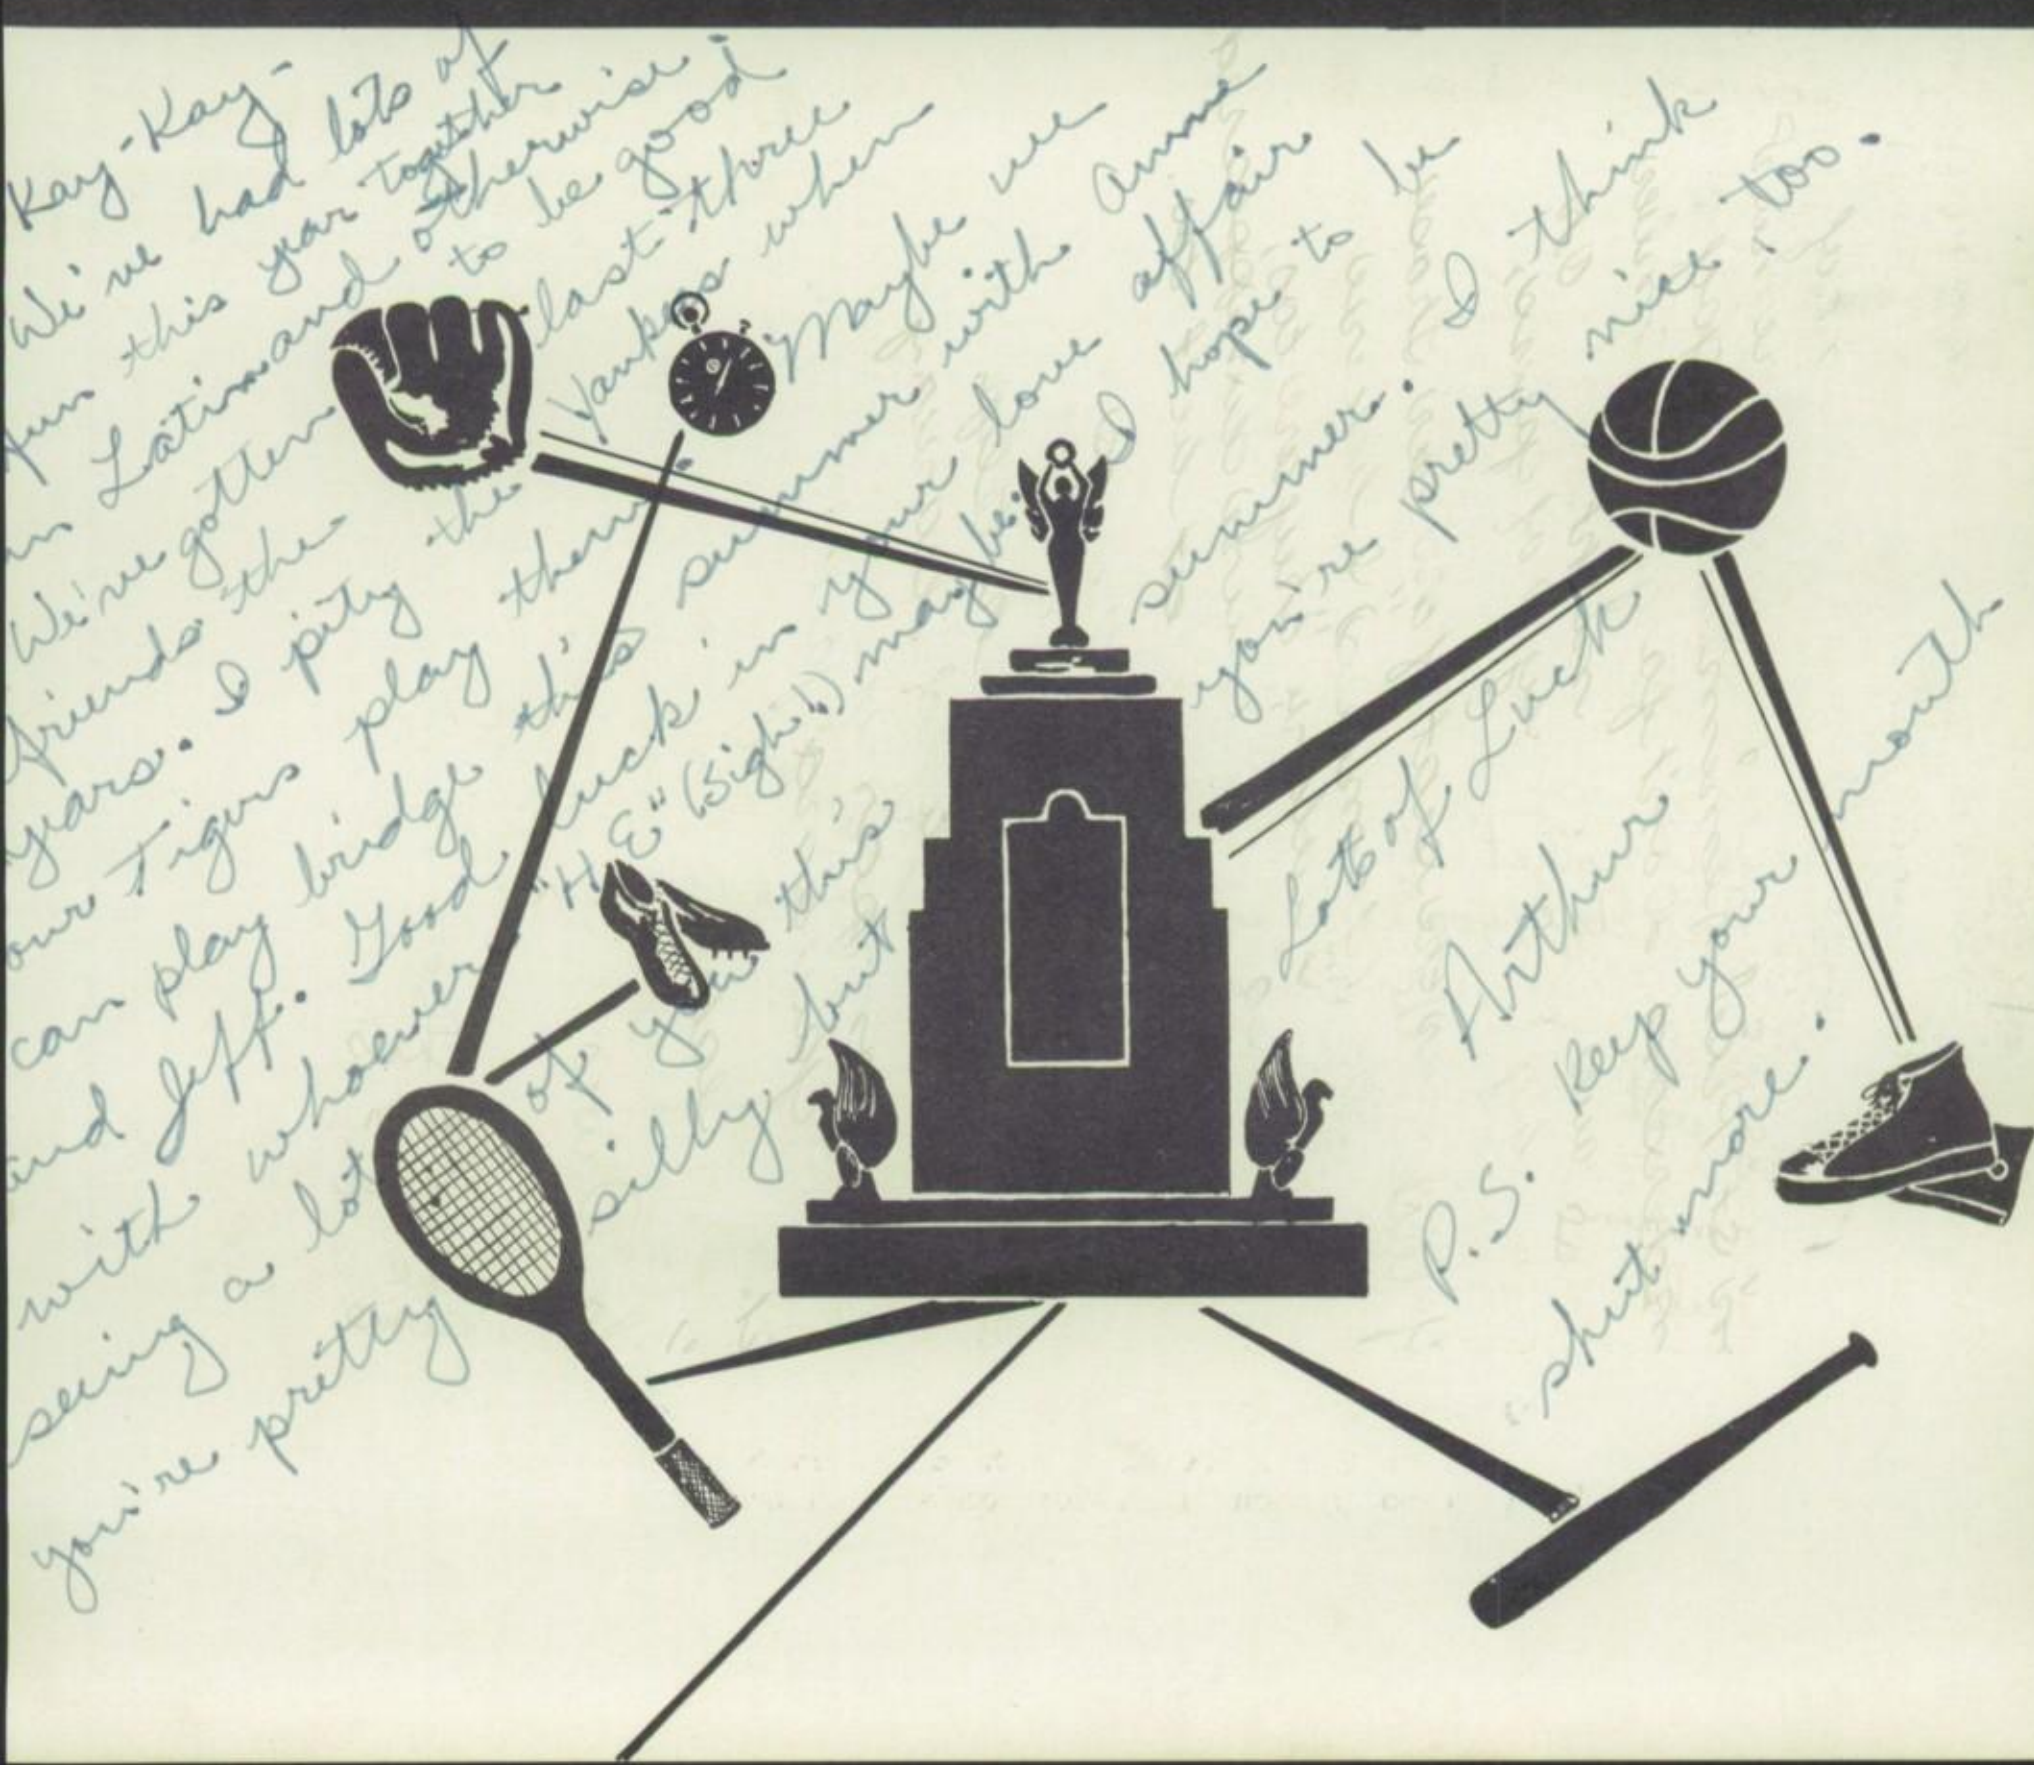 Kay-Kay-
We've had lots of
fun this year together
in Latin and otherwise.
We've gotten to be good
friends the last three
years. I pity the Yankes when
our Tigers play them. Maybe we
can play bridge this summer with Anne
and Jeff. Good luck in your love affair
with whoever "H E" (Sigh!) may be. I hope to be
seeing a lot of you this summer. I think
you're pretty silly but you're pretty nice, too.
Lots of Luck
Arthur
P.S. Keep your mouth
shut more.